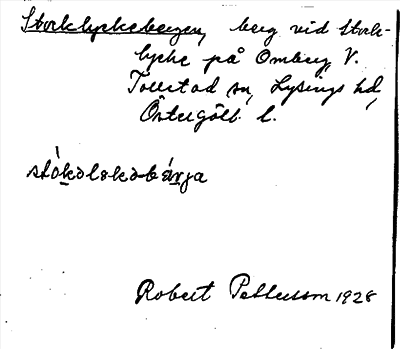 Storklyckebergen, berg vid Stork-
lycke på Omberg V.
Tollstad sn, Lysings hd,
Östergötl. l.
stòkəlskəbǽrja
Robert Pettersson 1928